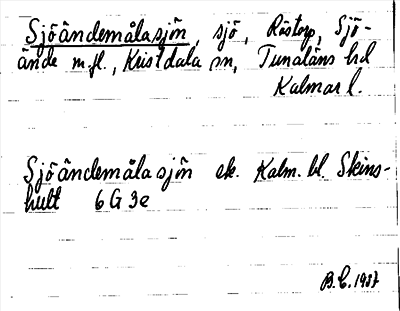 Sjöändemålasjön, sjö, Råstorp, Sjö-
ände m.fl., Kristdala sn, Tunaläns hd
Kalmar l.
Sjöändemålasjön ek. Kalm. bl. Skins-
hult 6G 3e
B.C. 1937